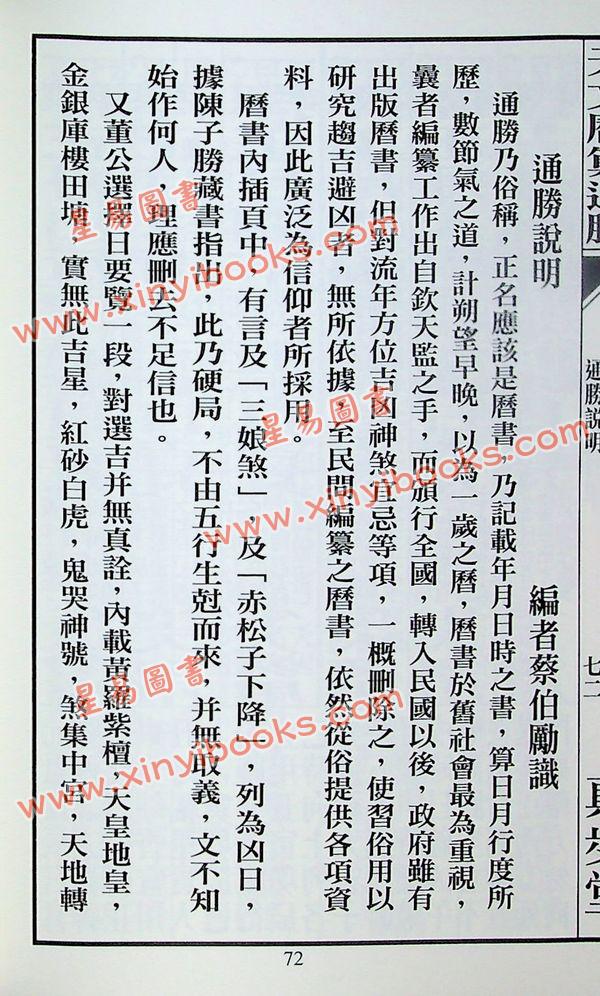 通勝說明
編者蔡伯勵識
通勝乃俗稱，正名應該是曆書，乃記載年月日時之書，算日月行度所
歷，數節氣之道，計朔望早晚，以為一歲之曆，曆書於舊社會最為重視，
曩者編纂工作出自欽天監之手，而頒行全國，轉入民國以後，政府雖有
出版曆書，但對流年方位吉凶神煞宜忌等項，一概刪除之，使習俗用以
研究趨吉避凶者，無所依據，至民間編纂之曆書，依然從俗提供各項資
料，因此廣泛為信仰者所採用。
曆書內插頁中，有言及「三娘煞」，及「赤松子下降」，列為凶日，
據陳子勝藏書指出，此乃硬局，不由五行生尅而來，并無取義，文不知
始作何人，理應刪去不足信也。
又董公選擇日要覽一段，對選吉并無真詮，內載黃羅紫檀，天皇地皇，
金銀庫樓田塘，實無此吉星，紅砂白虎，鬼哭神號，煞集中宮，天地轉
通勝說明
七二
72
星易圖書
www.xinyibooks.com
星易圖書
www.xinyibooks.com
星易圖書
www.xinyibooks.com